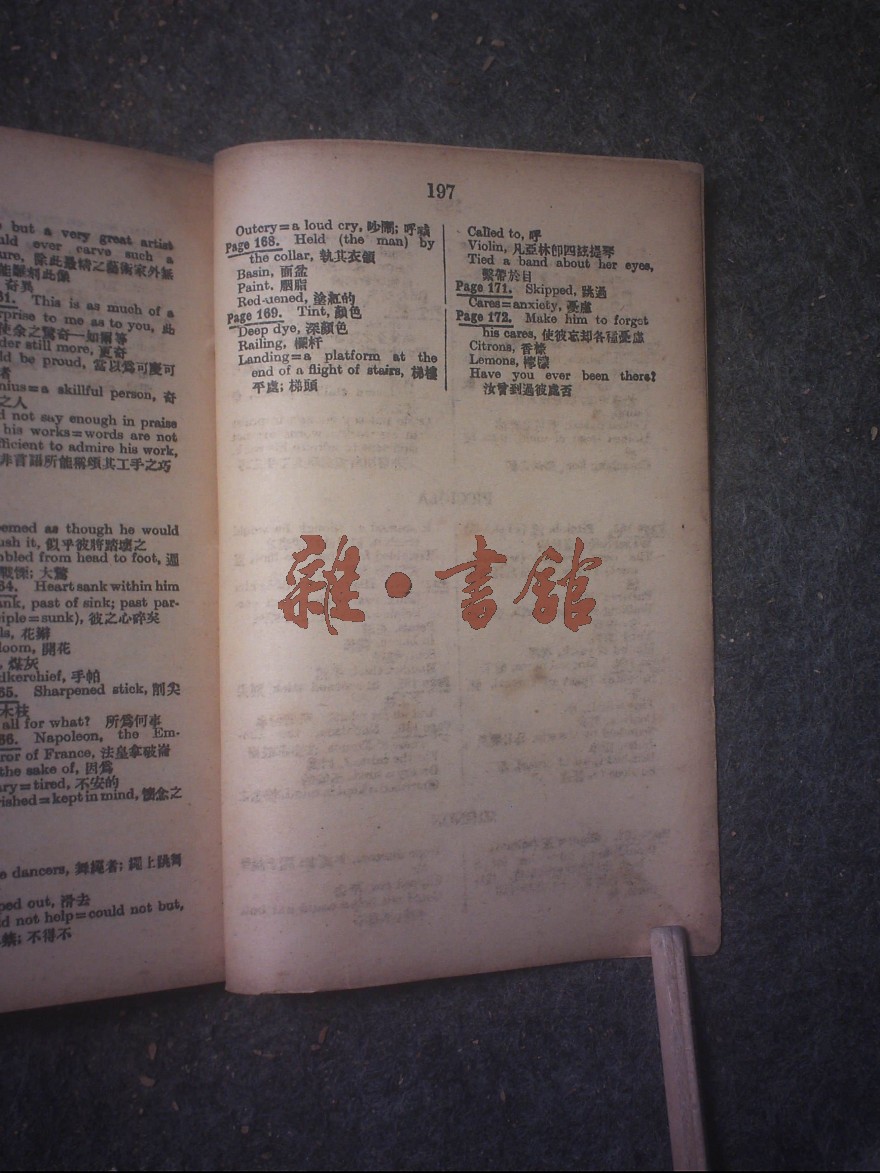 but a very great artist
ever carve such a
除此最精之藝術家外無
能雕刻此像
奇異
This is as much of a
to me as to you, 此
使余之驚奇一如爾等
still more, 更奇
be proud, 當以爲可慶可
者
=a skillful person, 奇
之人
not say enough in praise
his works=words are not
to admire his work,
非言語所能稱頌其工手之巧
as though he would
it, 似乎彼將踏壞之
from head to foot, 遍
戰慄; 大驚
Heart sank within him
past of sink; past par-
=sunk), 彼之心碎矣
花瓣
開花
煤灰
手帕
Sharpened stick, 削尖
木枝
all for what? 所爲何事
Napoleon, the Em-
of France, 法皇拿破崙
the sake of, 因爲
=tired, 不安的
=kept in mind, 懷念之
dancers, 舞繩者; 繩上跳舞
out, 滑去
not help=could not but,
不得不
197
Outcry=a loud cry, 吵鬧; 呼喊
Page 168. Held (the man) by
the collar, 執其衣領
Basin, 面盆
Paint, 胭脂
Reddened, 塗紅的
Page 169. Tint, 顏色
Deep dye, 深顏色
Railing, 欄杆
Landing=a platform at the
end of a flight of stairs, 梯樓
平處; 梯頭
Called to, 呼
Violin, 凡亞林卽四絃提琴
Tied a band about her eyes,
繫帶於目
Page 171. Skipped, 跳過
Cares=anxiety, 憂慮
Page 172. Make him to forget
his cares, 使彼忘却各種憂慮
Citrons, 香櫞
Lemons, 檸檬
Have you ever been there?
汝曾到過彼處否
雜·書館